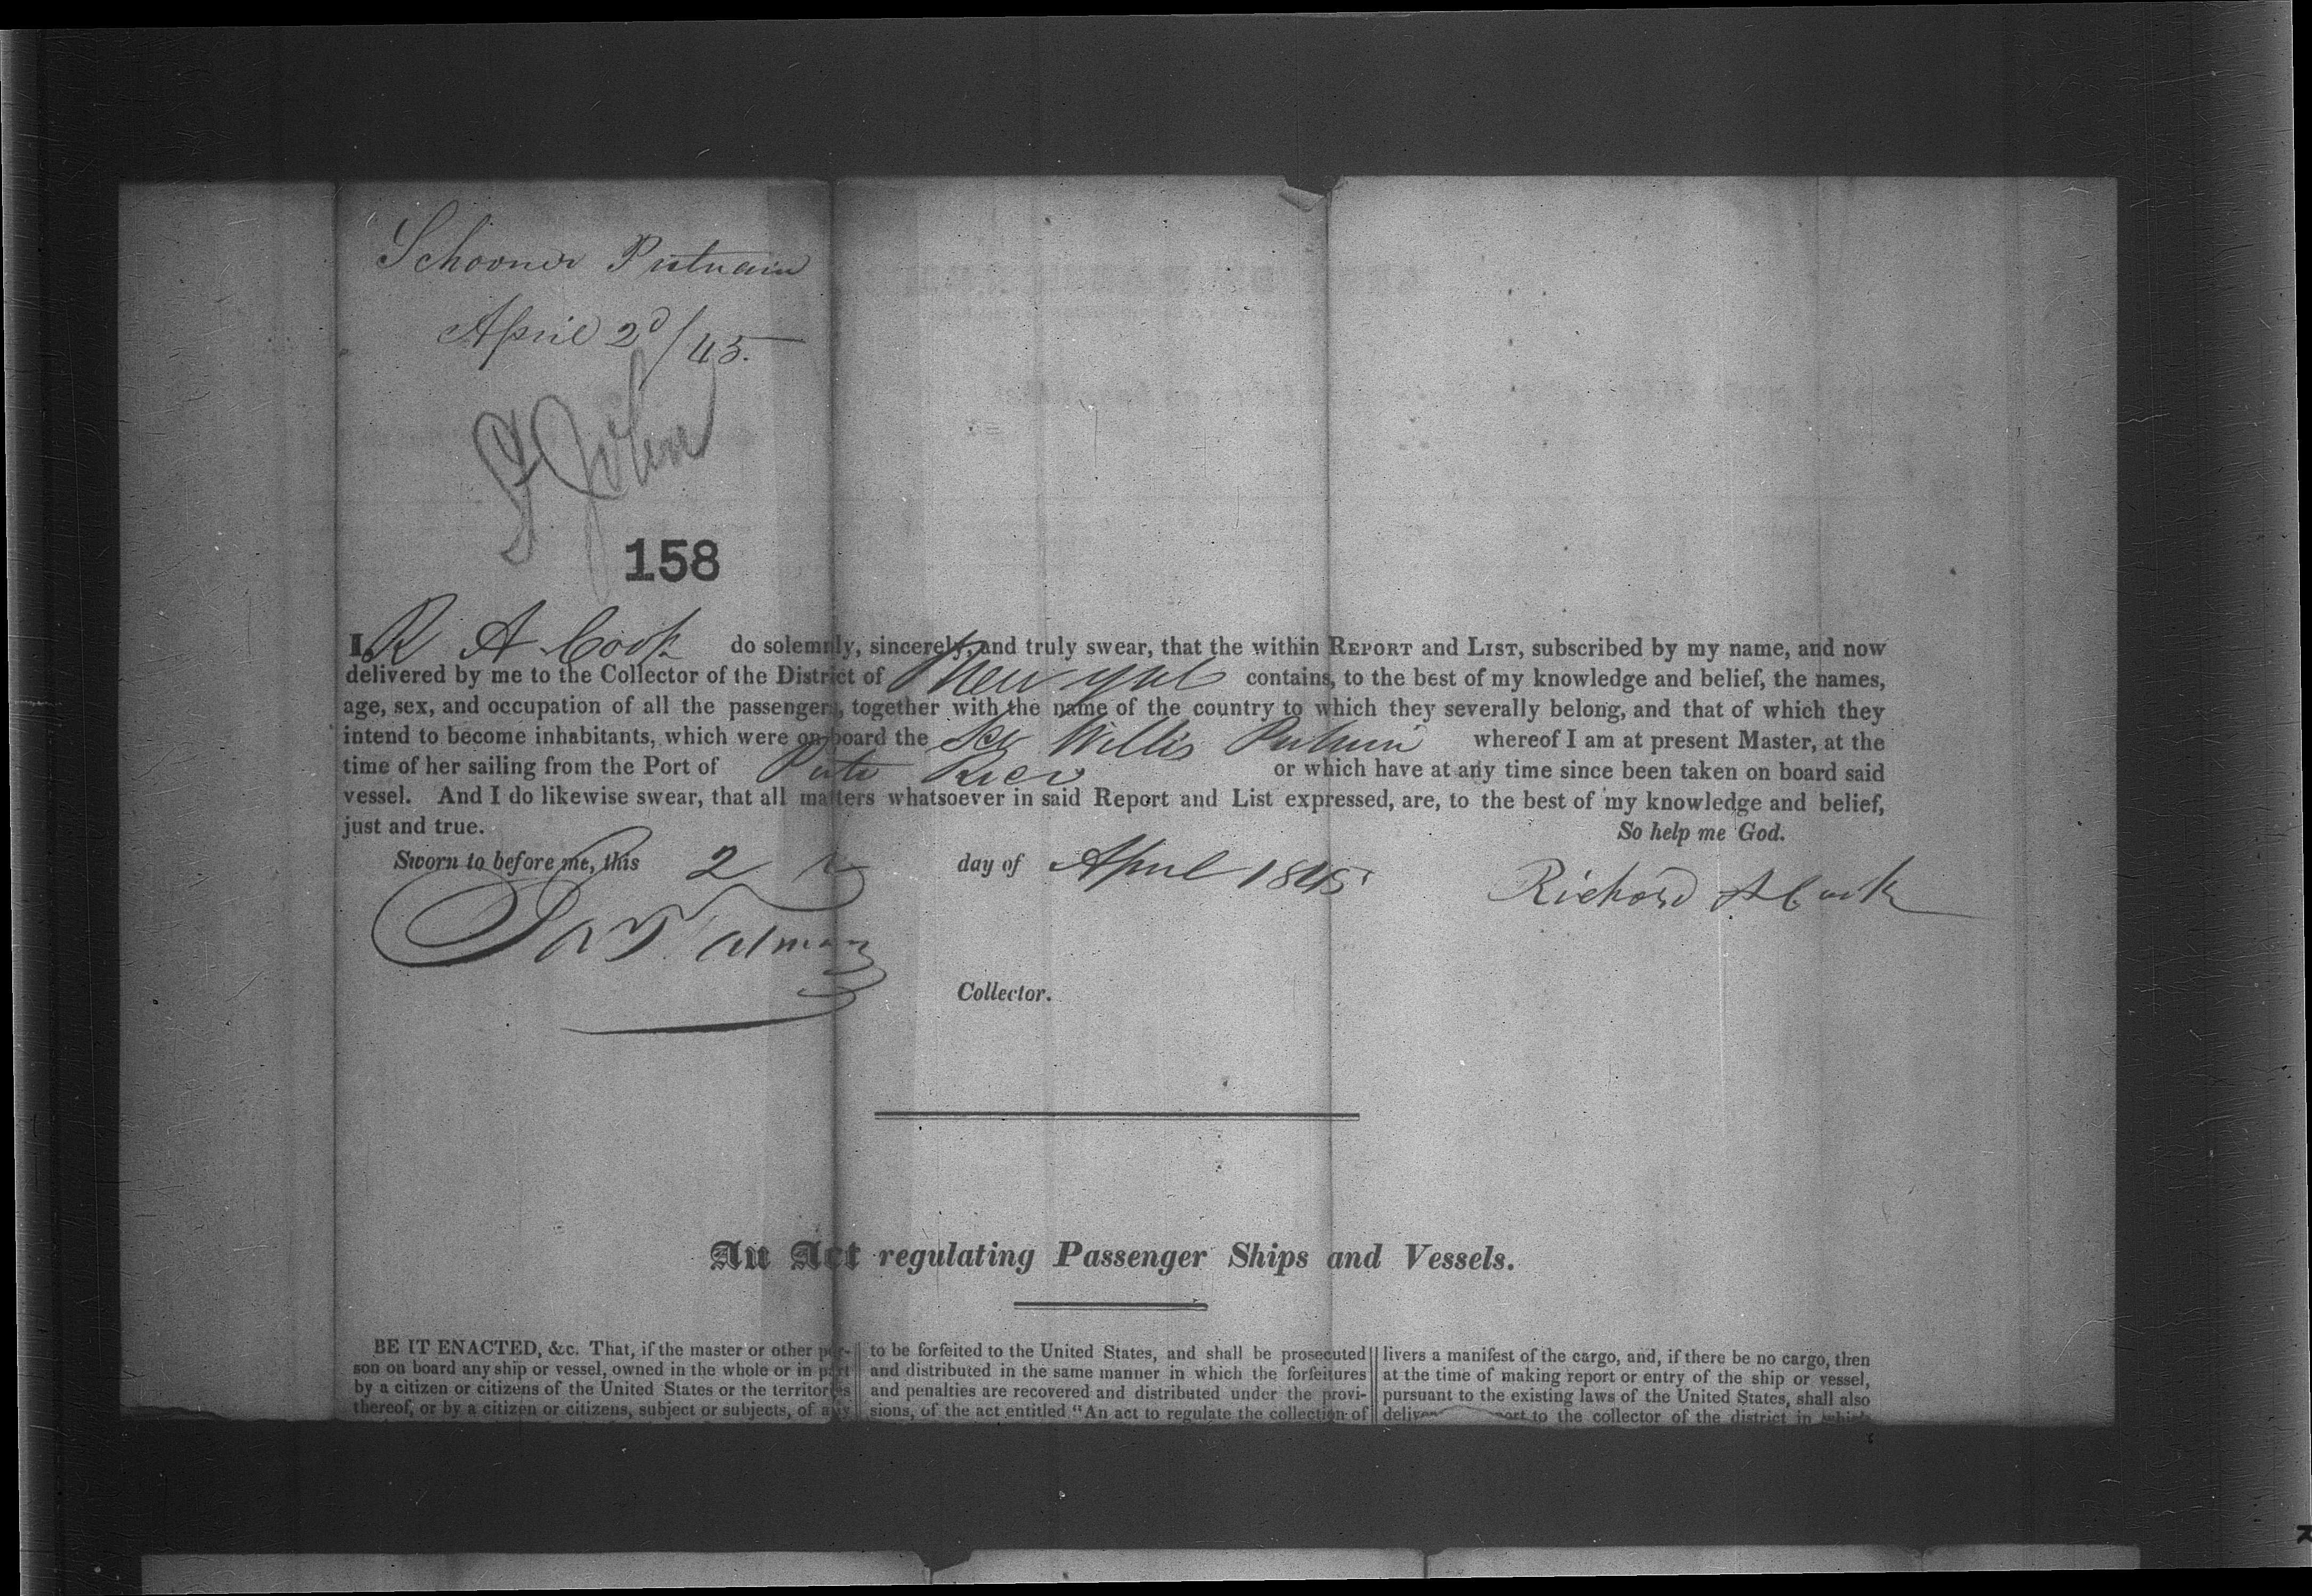 Schooner Putnam
April 2d/45.
St John
158
I, R A Cook do solemnly, sincerely, and truly swear, that the within REPORT and LIST, subscribed by my name, and now
delivered by me to the Collector of the District of New York contains, to the best of my knowledge and belief, the names,
age, sex, and occupation of all the passengers, together with the name of the country to which they severally belong, and that of which they
intend to become inhabitants, which were on board the Sch Willis Putnam whereof I am at present Master, at the
time of her sailing from the Port of Porto Rico or which have at any time since been taken on board said
vessel. And I do likewise swear, that all matters whatsoever in said Report and List expressed, are, to the best of my knowledge and belief,
just and true. So help me God.
Sworn to before me, this 2 day of April 1845
Richard A Cook
Talman
Collector.
An Act regulating Passenger Ships and Vessels.
BE IT ENACTED, &c. That, if the master or other per-
son on board any ship or vessel, owned in the whole or in part
by a citizen or citizens of the United States or the territories
thereof, or by a citizen or citizens, subject or subjects, of any
to be forfeited to the United States, and shall be prosecuted
and distributed in the same manner in which the forfeitures
and penalties are recovered and distributed under the provi-
sions, of the act entitled "An act to regulate the collection of
livers a manifest of the cargo, and, if there be no cargo, then
at the time of making report or entry of the ship or vessel,
pursuant to the existing laws of the United States, shall also
to the collector of the district in which